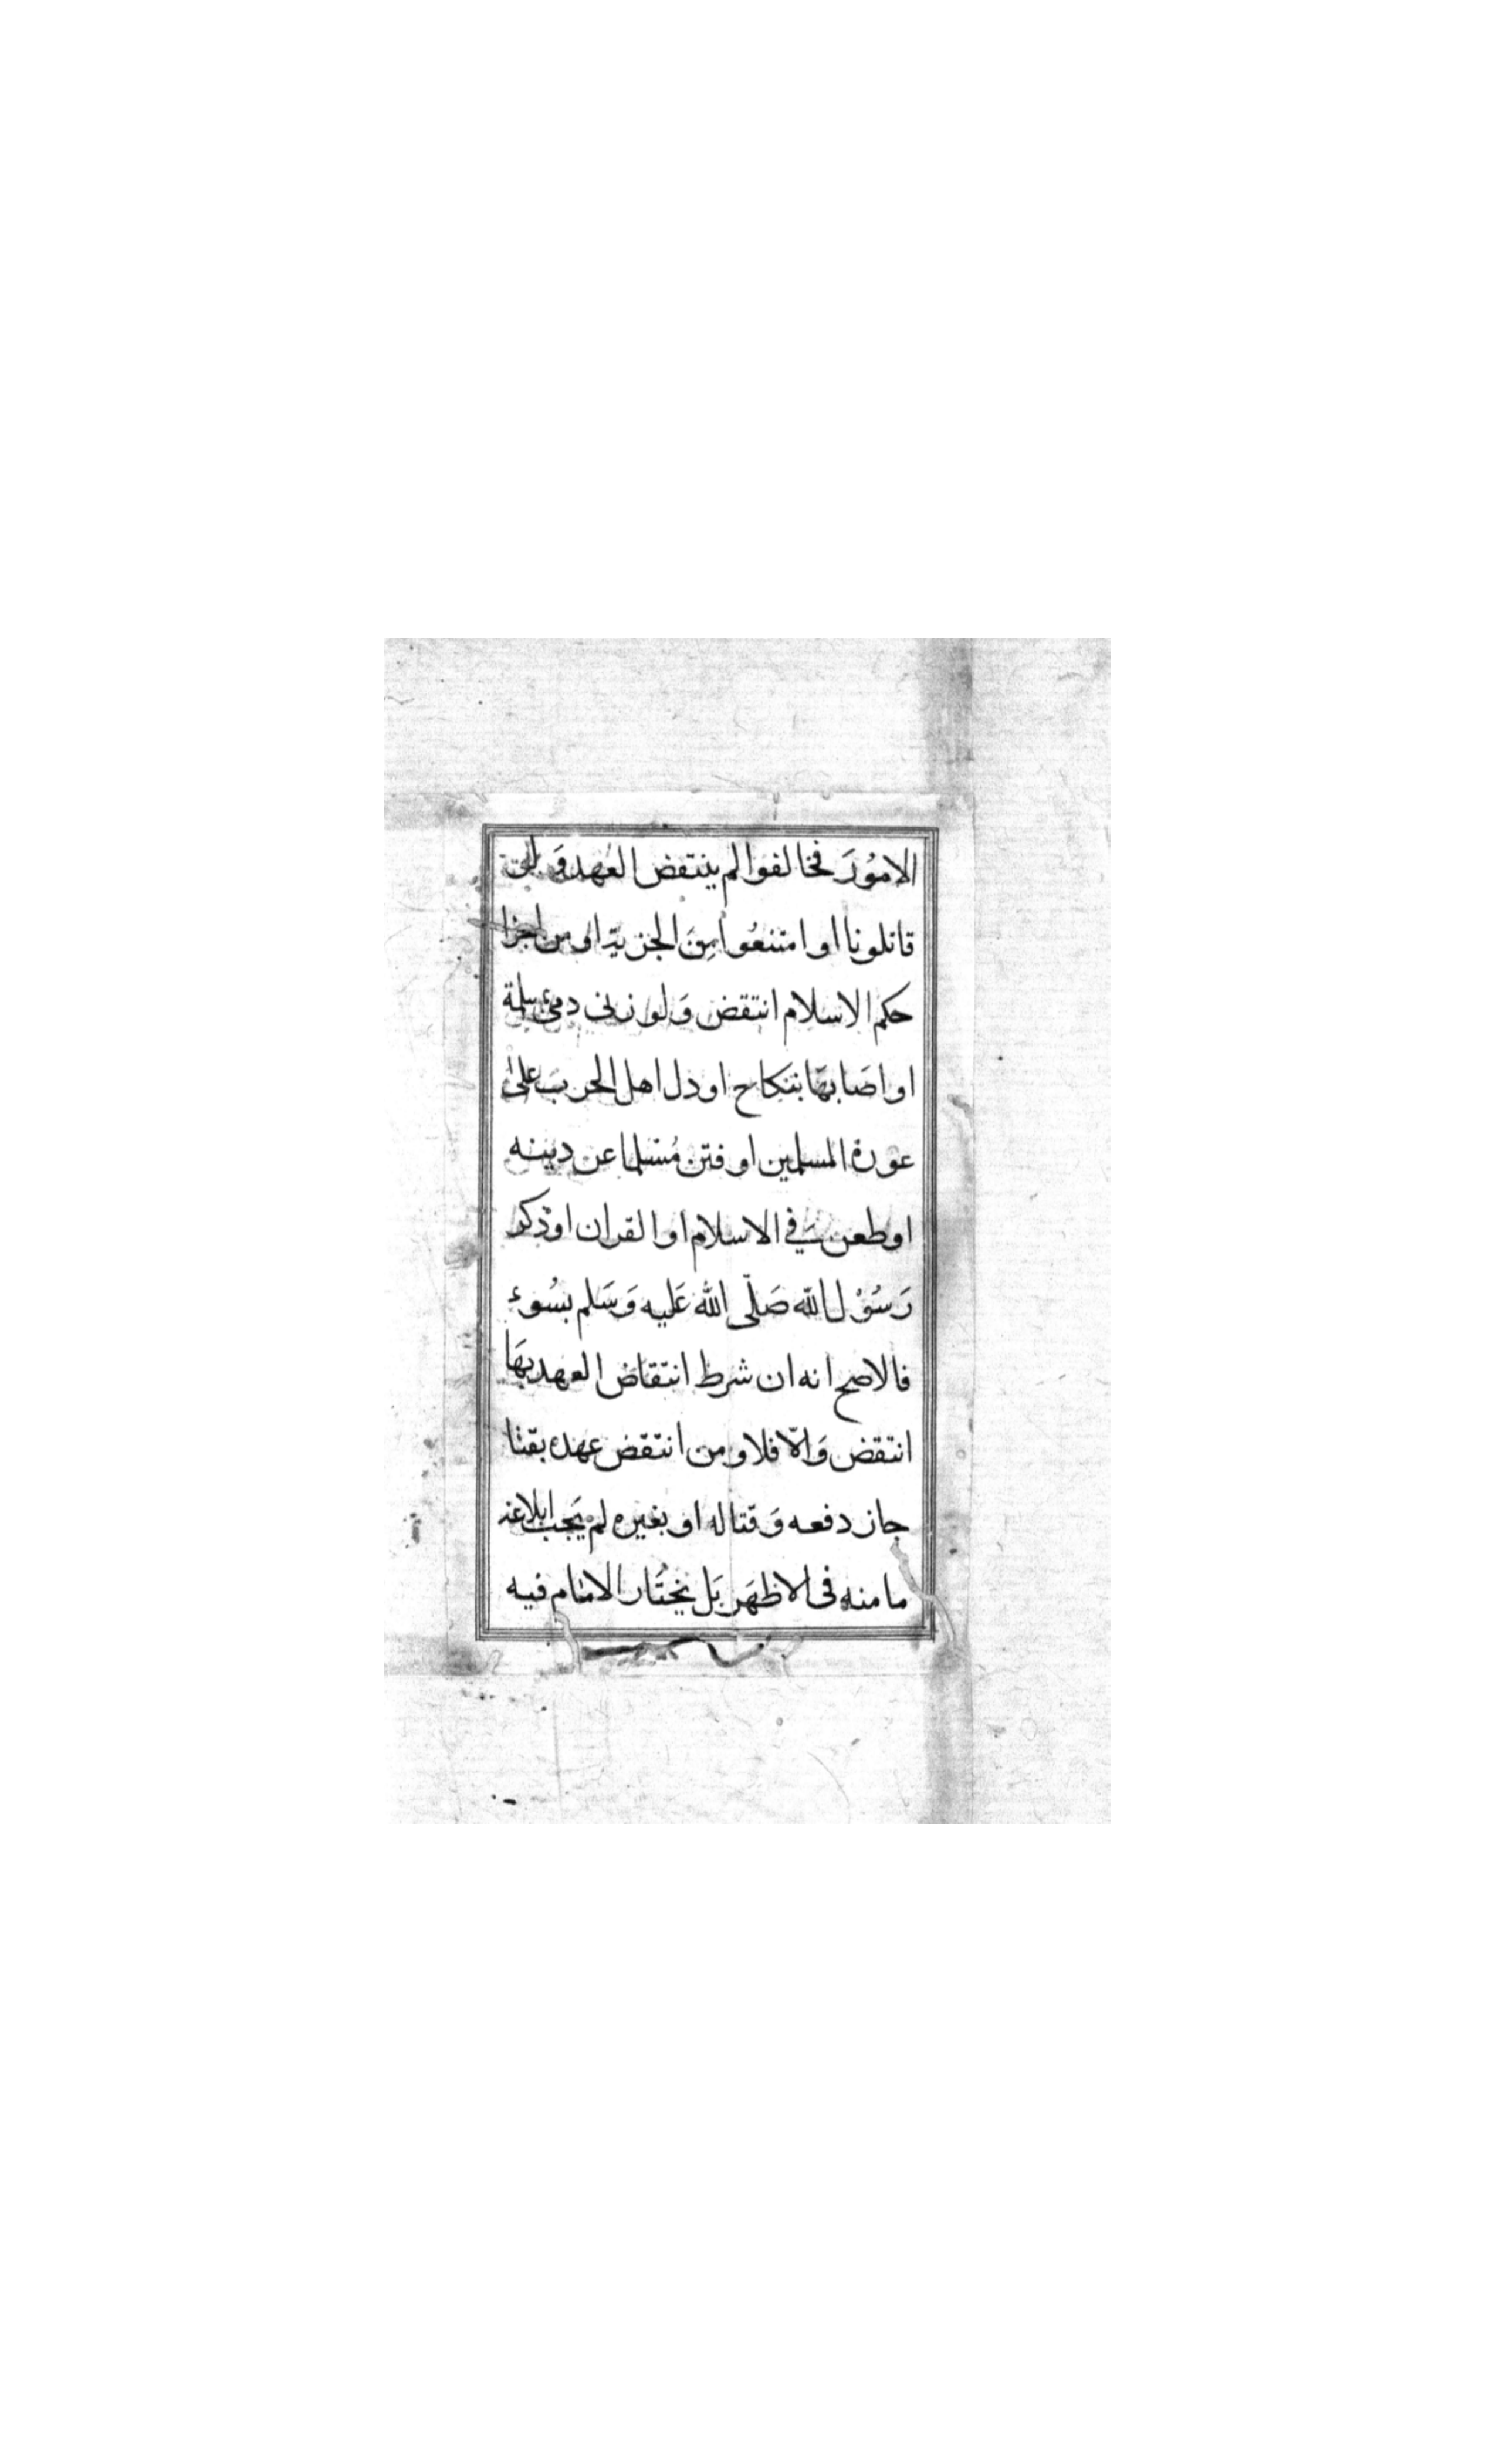 الامُورَ فخالفوا لم ينتقض العهد وَلو
قاتلونا او امتنعُوا مِنَ الجزيةِ او من اجرا
حكم الاسلام انتقض وَلو زنى ذمي بمسلمة
او اصَابهَا بنكاح او دل اهل الحرب على
عورة المسلمين او فتن مُسْلما عن دينه
او طعن في الاسلام او القران او ذكر
رَسُوْل الله صَلّى الله عَليه وَسَلم بسُوء
فالاصح انه ان شرط انتقاض العهد بهَا
انتقض وَالاّ فلا ومن انتقض عهده بقتا
جاز دفعه وَقتاله او بغيره لم يَجب ابلاغه
مامنه فى الاظهَر بَل يختَار الامَام فيه